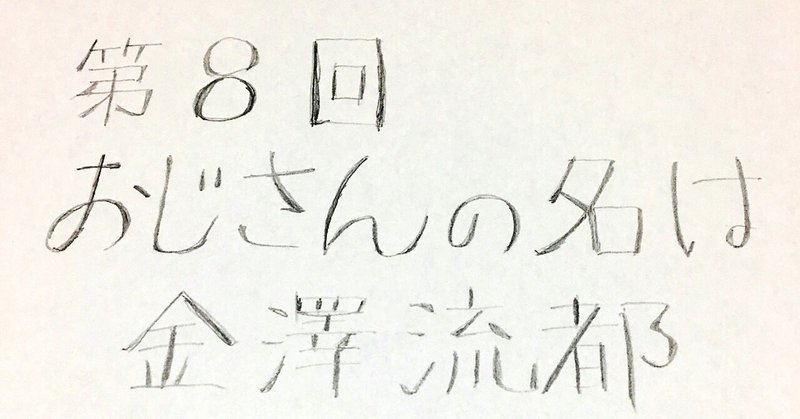 第8回
おじさんの名は
金澤流都